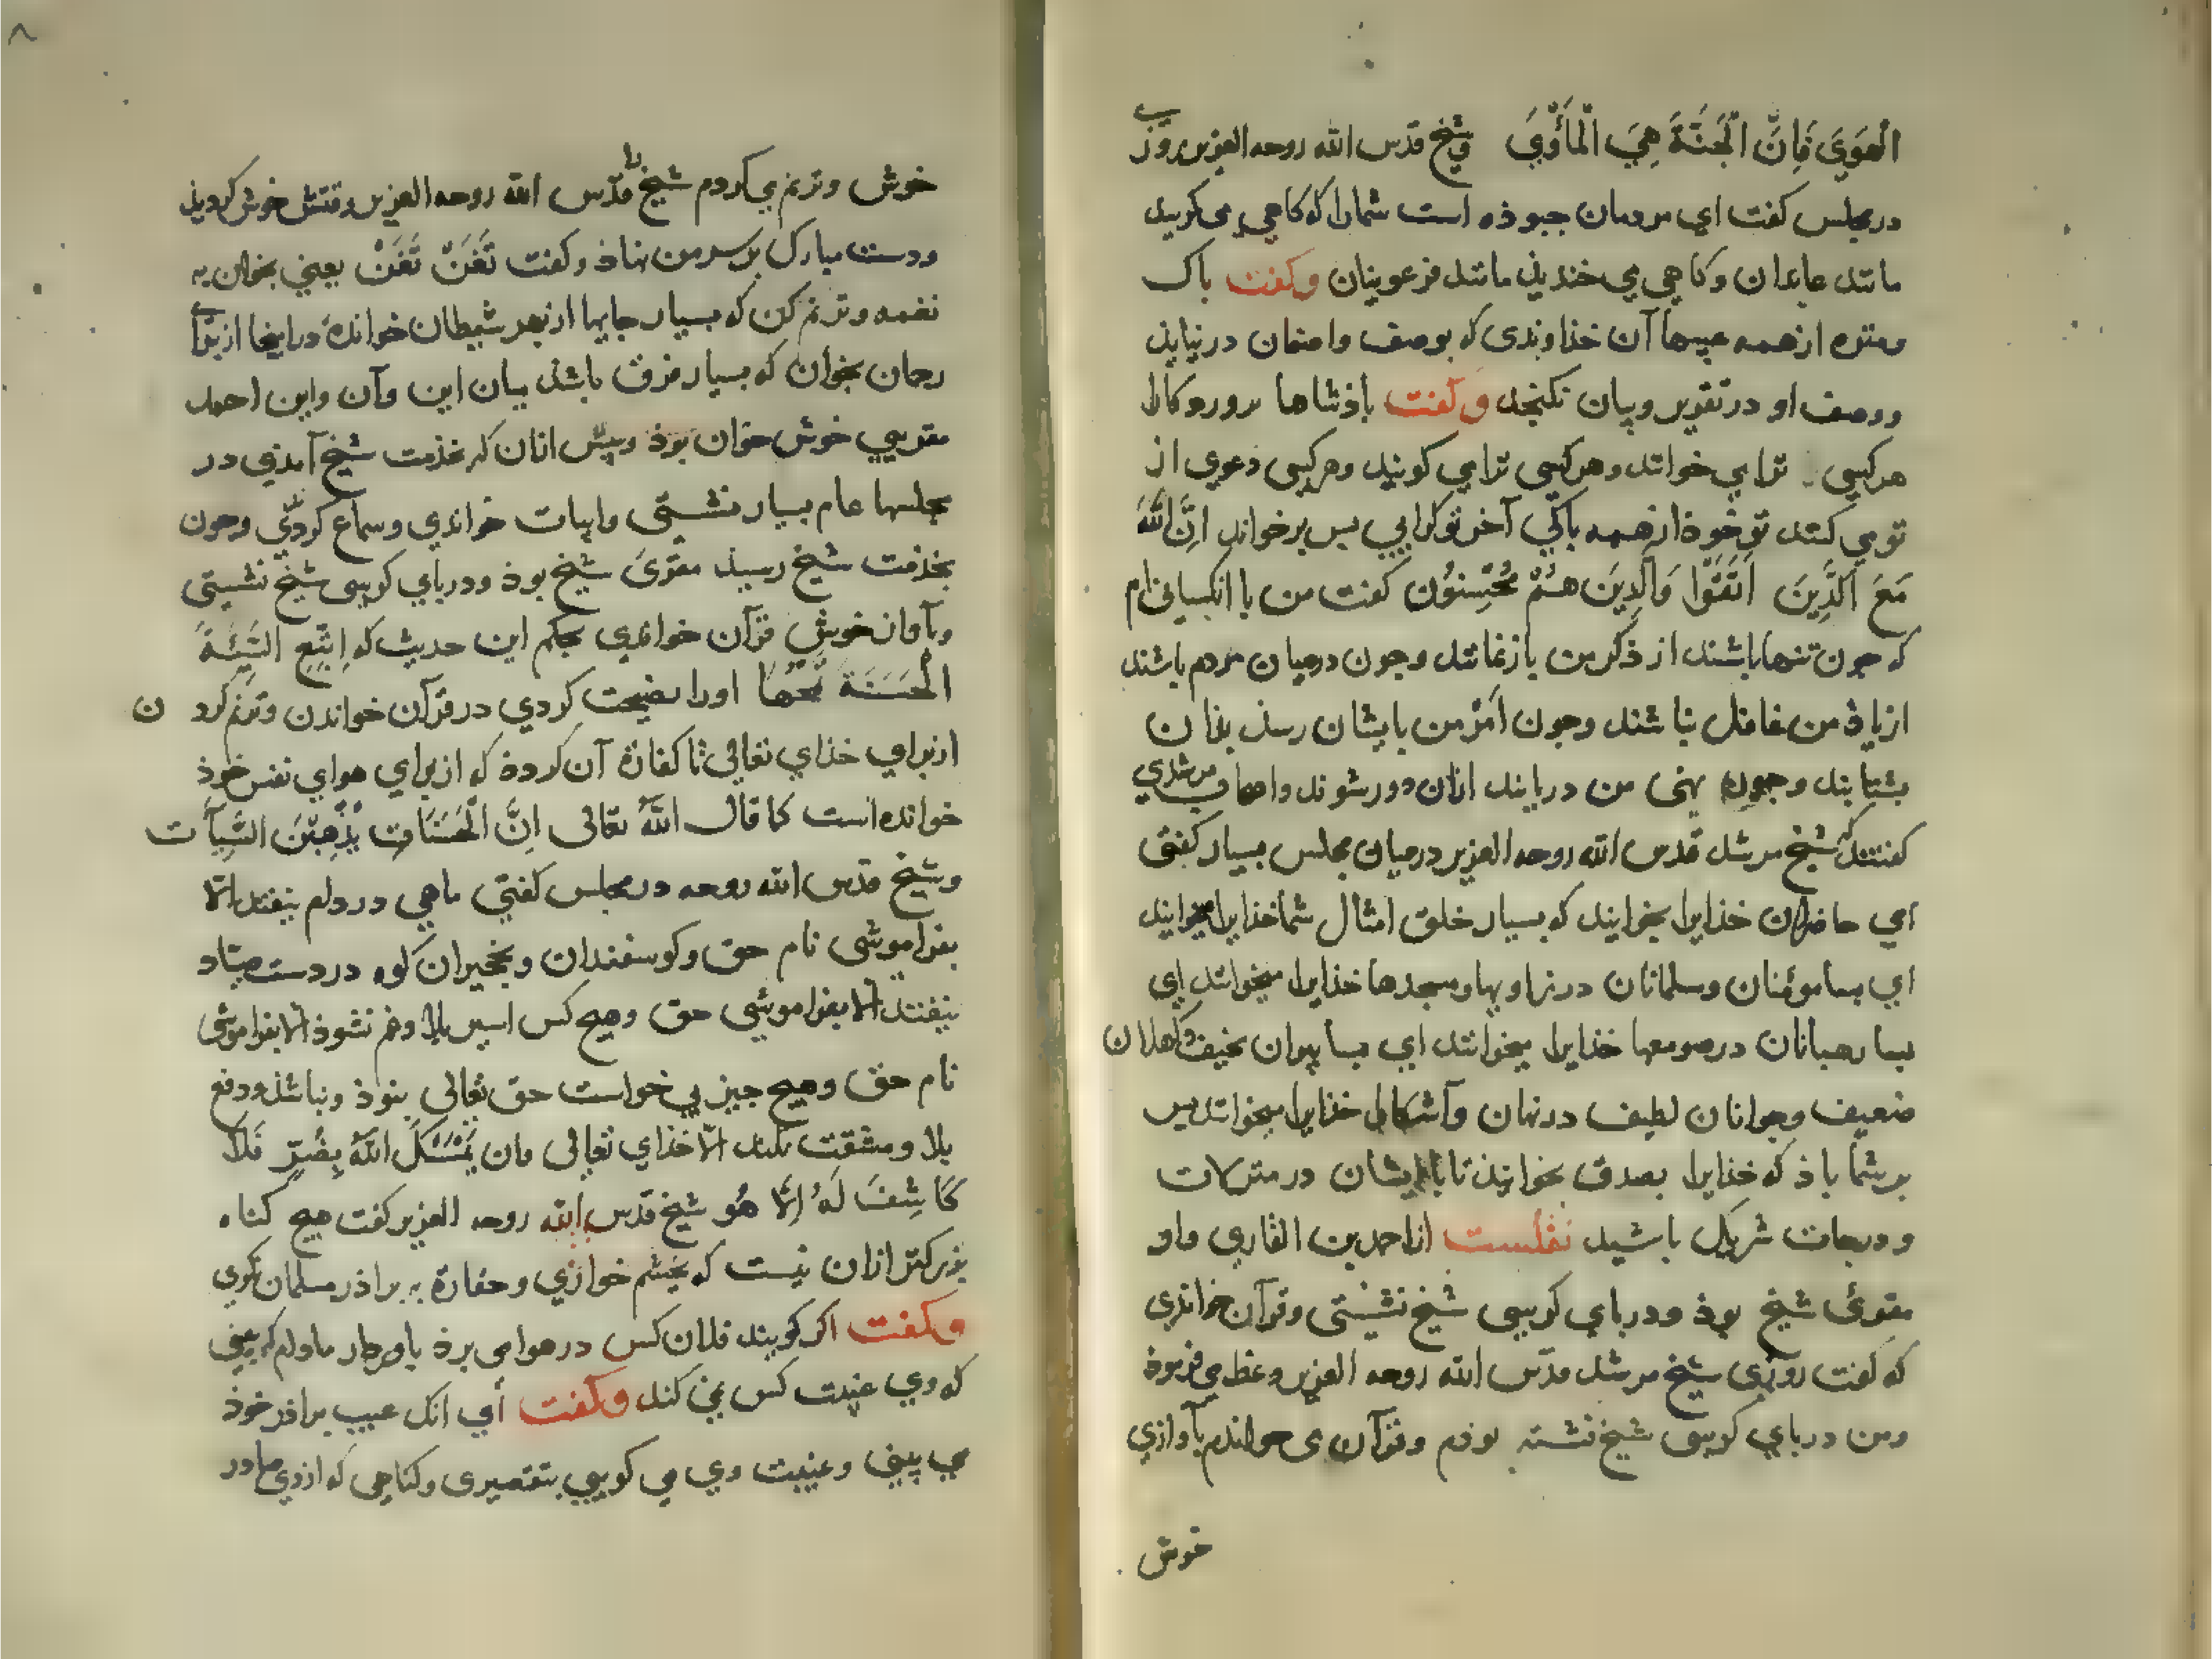 الْهَوَیَ فَاِنَّ الْجَنَّةَ هِيَ الْمَأْوَيَ شیخ قدس الله روحه العزیز روزی
در مجلس کفت ای مردمان جبوذه است شمارا که کاهی می کریید
مانند عابدان و کاهی می خندیذ مانند فرعونیان وکفت باک
ومنزه از همه عیبها آن خذاوندی که بوصف واصفان درنیایذ
ووصف او در تقریر وبیان نکنجد وکفت باذشاها بروردکارا
هرکسی ترا می خوانند وهرکسی ترا می کویند وهرکسی دعوی از
تو می کنند تو خوذ از همه باکی آخر تو کرایی بس برخواند اِنَّ اللهَ
مَعَ الَّذِینَ اتَّقَوْا وَالَّذِینَ هُمْ مُحْسِنُون کفت من با آنکسانی ام
که جون تنها باشند از ذکر من بازنمانند وجون درمیان مردم باشند
از یاذ من غافل نباشند وجون اَمْر من بایشان رسذ بذان
بشتابند وجون نهی من دریابند ازان دور شوند واصحاب مرشدی
کفتند که شیخ مرشد قدس الله روحه العزیز درمیان مجلس بسیار کفتی
ای حاضران خذایرا بخوانید که بسیار خلق امثال شما خذایرا میخوانند
ای بسا مومنان ومسلمانان در زاویها ومسجدها خذایرا میخوانند ای
بسا رهبانان در صومعها خذایرا میخوانند ای بسا بیران نحیف وکاهلان
ضعیف وجوانان لطیف در نهان وآشکارا خذایرا میخوانند بس
بر شما باذ که خذایرا بصدق بخوانیذ تا با ایشان در منزلات
ودرجات شریک باشید نقلست از احمد بن القاری واو
مقرئ شیخ بوذ ودر بای کرسی شیخ نشستی وقرآن خواندی
که کفت روزی شیخ مرشد قدّس الله روحه العزیز وعظ می فرموذ
ومن در بای کرسی شیخ نشسته بوذم وقرآن می خواندم بآوازی
خوش
خوش وترنم می کردم شیخ قدّس الله روحه العزیز وقتش خوش کردیذ
ودست مبارک بر سر من نهاذ وکفت تَغَنَّ تَغَنَّ یعنی بخوان به
نغمه وترنم کن که بسیار جایها از بهر شیطان خوانده در اینجا از برای
رحمان بخوان که بسیار فرق باشد میان این وآن واین احمد
مقریی خوش خوان بوذ وبیش ازان که بخذمت شیخ آمدی در
مجلسها عام بسیار نشستی وابیات خواندی وسماع کردی وجون
بخذمت شیخ رسیذ مقرئ شیخ بوذ ودر بای کرسی شیخ نشستی
وبآواز خوش قرآن خواندی بحکم این حدیث که اِتْبَعِ السَّیِّئَةَ
الْحَسَنَةَ تَمْحُهَا اورا نصیحت کردی در قرآن خواندن وترنم کردن
از برای خذای تعالی تا کفارة آن کردد که از برای هوای نفس خوذ
خوانده است کما قال اللهُ تعالی اِنَّ الْحَسَنَاتِ یُذْهِبْنَ السَّیِّآت
وشیخ قدّس الله روحه در مجلس کفتی ماهی در دام نیفتد الّا
بفراموشی نام حق وکوسفندان ونخجیران کوه در دست صیاد
نیفتند الّا بفراموشی حق وهیج کس اسیر بلا وغم نشوذ الّا بفراموشی
نام حق وهیج جیز بی خواست حق تعالی نبوذ ونباشذ ودفع
بلا ومشقت نکند الّا خذای تعالی وان یَمْسَسْکَ اللهُ بِضُرٍّ فَلَا
کَاشِفَ لَهُ اِلَّا هُو شیخ قدّس الله روحه العزیز کفت هیج کناه
بزرکتر ازان نیست که بجشم خوازی وحقارة به براذر مسلمان نکری
وکفت اکر کویند فلان کس در هوا می برذ باور مدار مادام که بینی
که وی غیبت کس می کند وکفت ای آنک عیب براذر خوذ
می بینی وغیبت وی می کویی بتقصیری وکناهی که از وی صادر